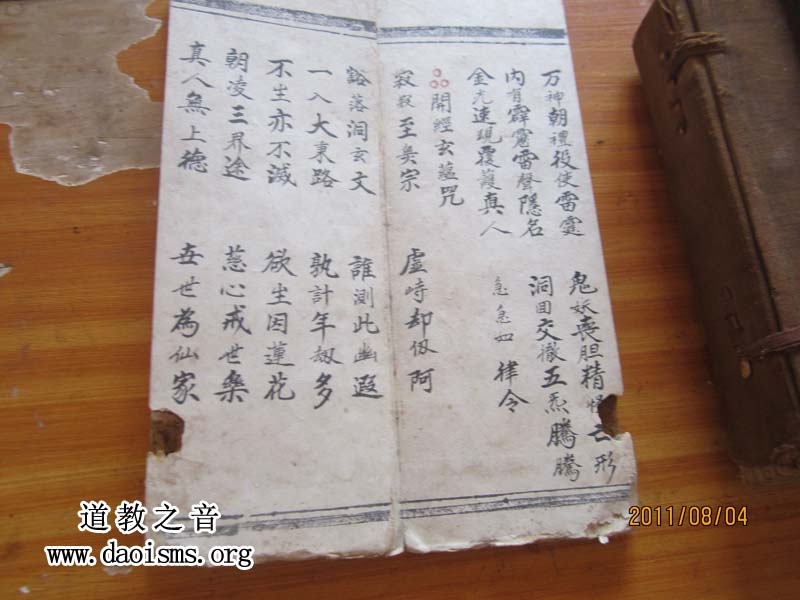 万神朝禮役使雷霆 鬼妖喪胆精怪亡形
内有霹靂雷聲隱名 洞回交徹五炁騰騰
金光速現覆護真人 急急如律令
開經玄蘊咒
寂寂至宗 虛峙却仭阿
豁落洞玄文 誰測此幽遐
一入大東路 孰計年劫多
不生亦不滅 欲生因蓮花
朝凌三界途 慈心戒世樂
真人無上德 世世為仙家
道教之音
www.daoisms.org
2011/08/04